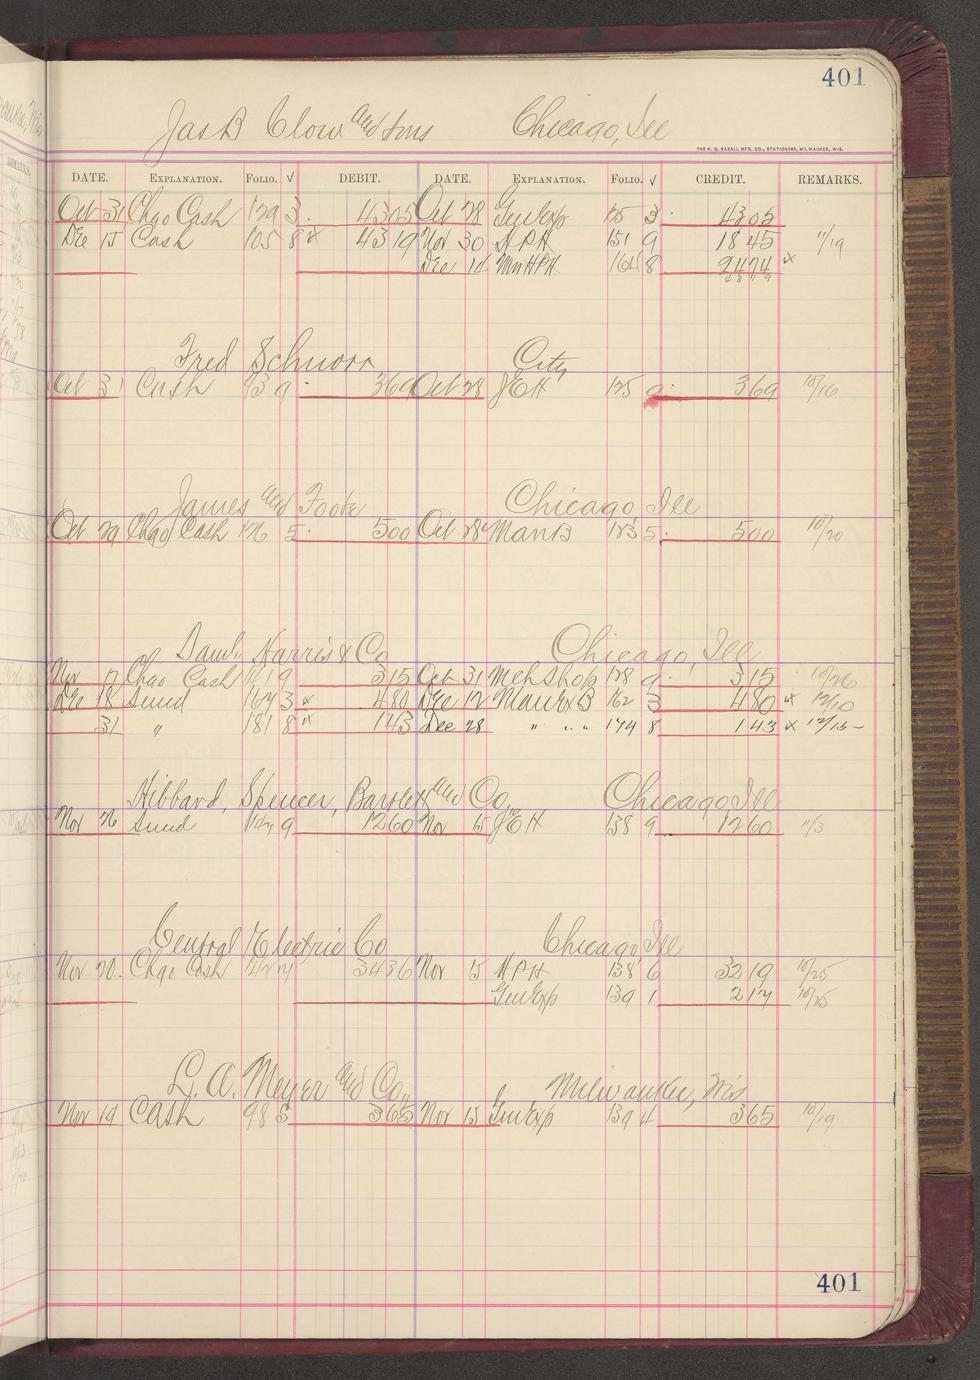 401
Jas B Clow and Sons Chicago, Ill
THE H. G. RAZALL MFG. CO., STATIONERS, MILWAUKEE, WIS.
DATE. EXPLANATION. FOLIO. √ DEBIT. DATE. EXPLANATION. FOLIO. √ CREDIT. REMARKS.
Oct 31 Chgo Cash 129 3 4305 Oct 28 Gen Exp 125 3 4305
Dec 15 Cash 105 8 x 4319 Nov 30 HPH 151 9 1845 11/19
Dec 14 HPH 164 8 2474 x
Fred Schnorr City
Oct 31 Cash 13 9 369 Oct 28 JEH 125 9 369 10/16
James and Foote Chicago, Ill
Oct 29 Chgo Cash 126 5 500 Oct 28 Man B 123 5 500 10/20
Saml. Harris & Co Chicago, Ill
Nov 17 Chgo Cash 141 9 315 Oct 31 Mch Shop 128 9 315 10/26
Dec 18 Sund 167 3 x 480 Dec 12 Man Ex B 162 3 480 x 12/10
31 " 181 8 x 143 Dec 28 " " " 174 8 143 x 12/15 –
Hibbard, Spencer, Bartlett and Co., Chicago, Ill
Nov 26 Sund 147 9 1260 Nov 15 JEH 138 9 1260 11/3
Central Electric Co Chicago, Ill
Nov 20 Chgo Cash 142 7 3436 Nov 15 HPH 138 6 3219 10/25
Gen Exp 139 1 217 10/25
L. A. Meyer and Co., Milwaukee, Wis
Nov 19 Cash 98 5 365 Nov 15 Gen Exp 139 4 365 10/19
401